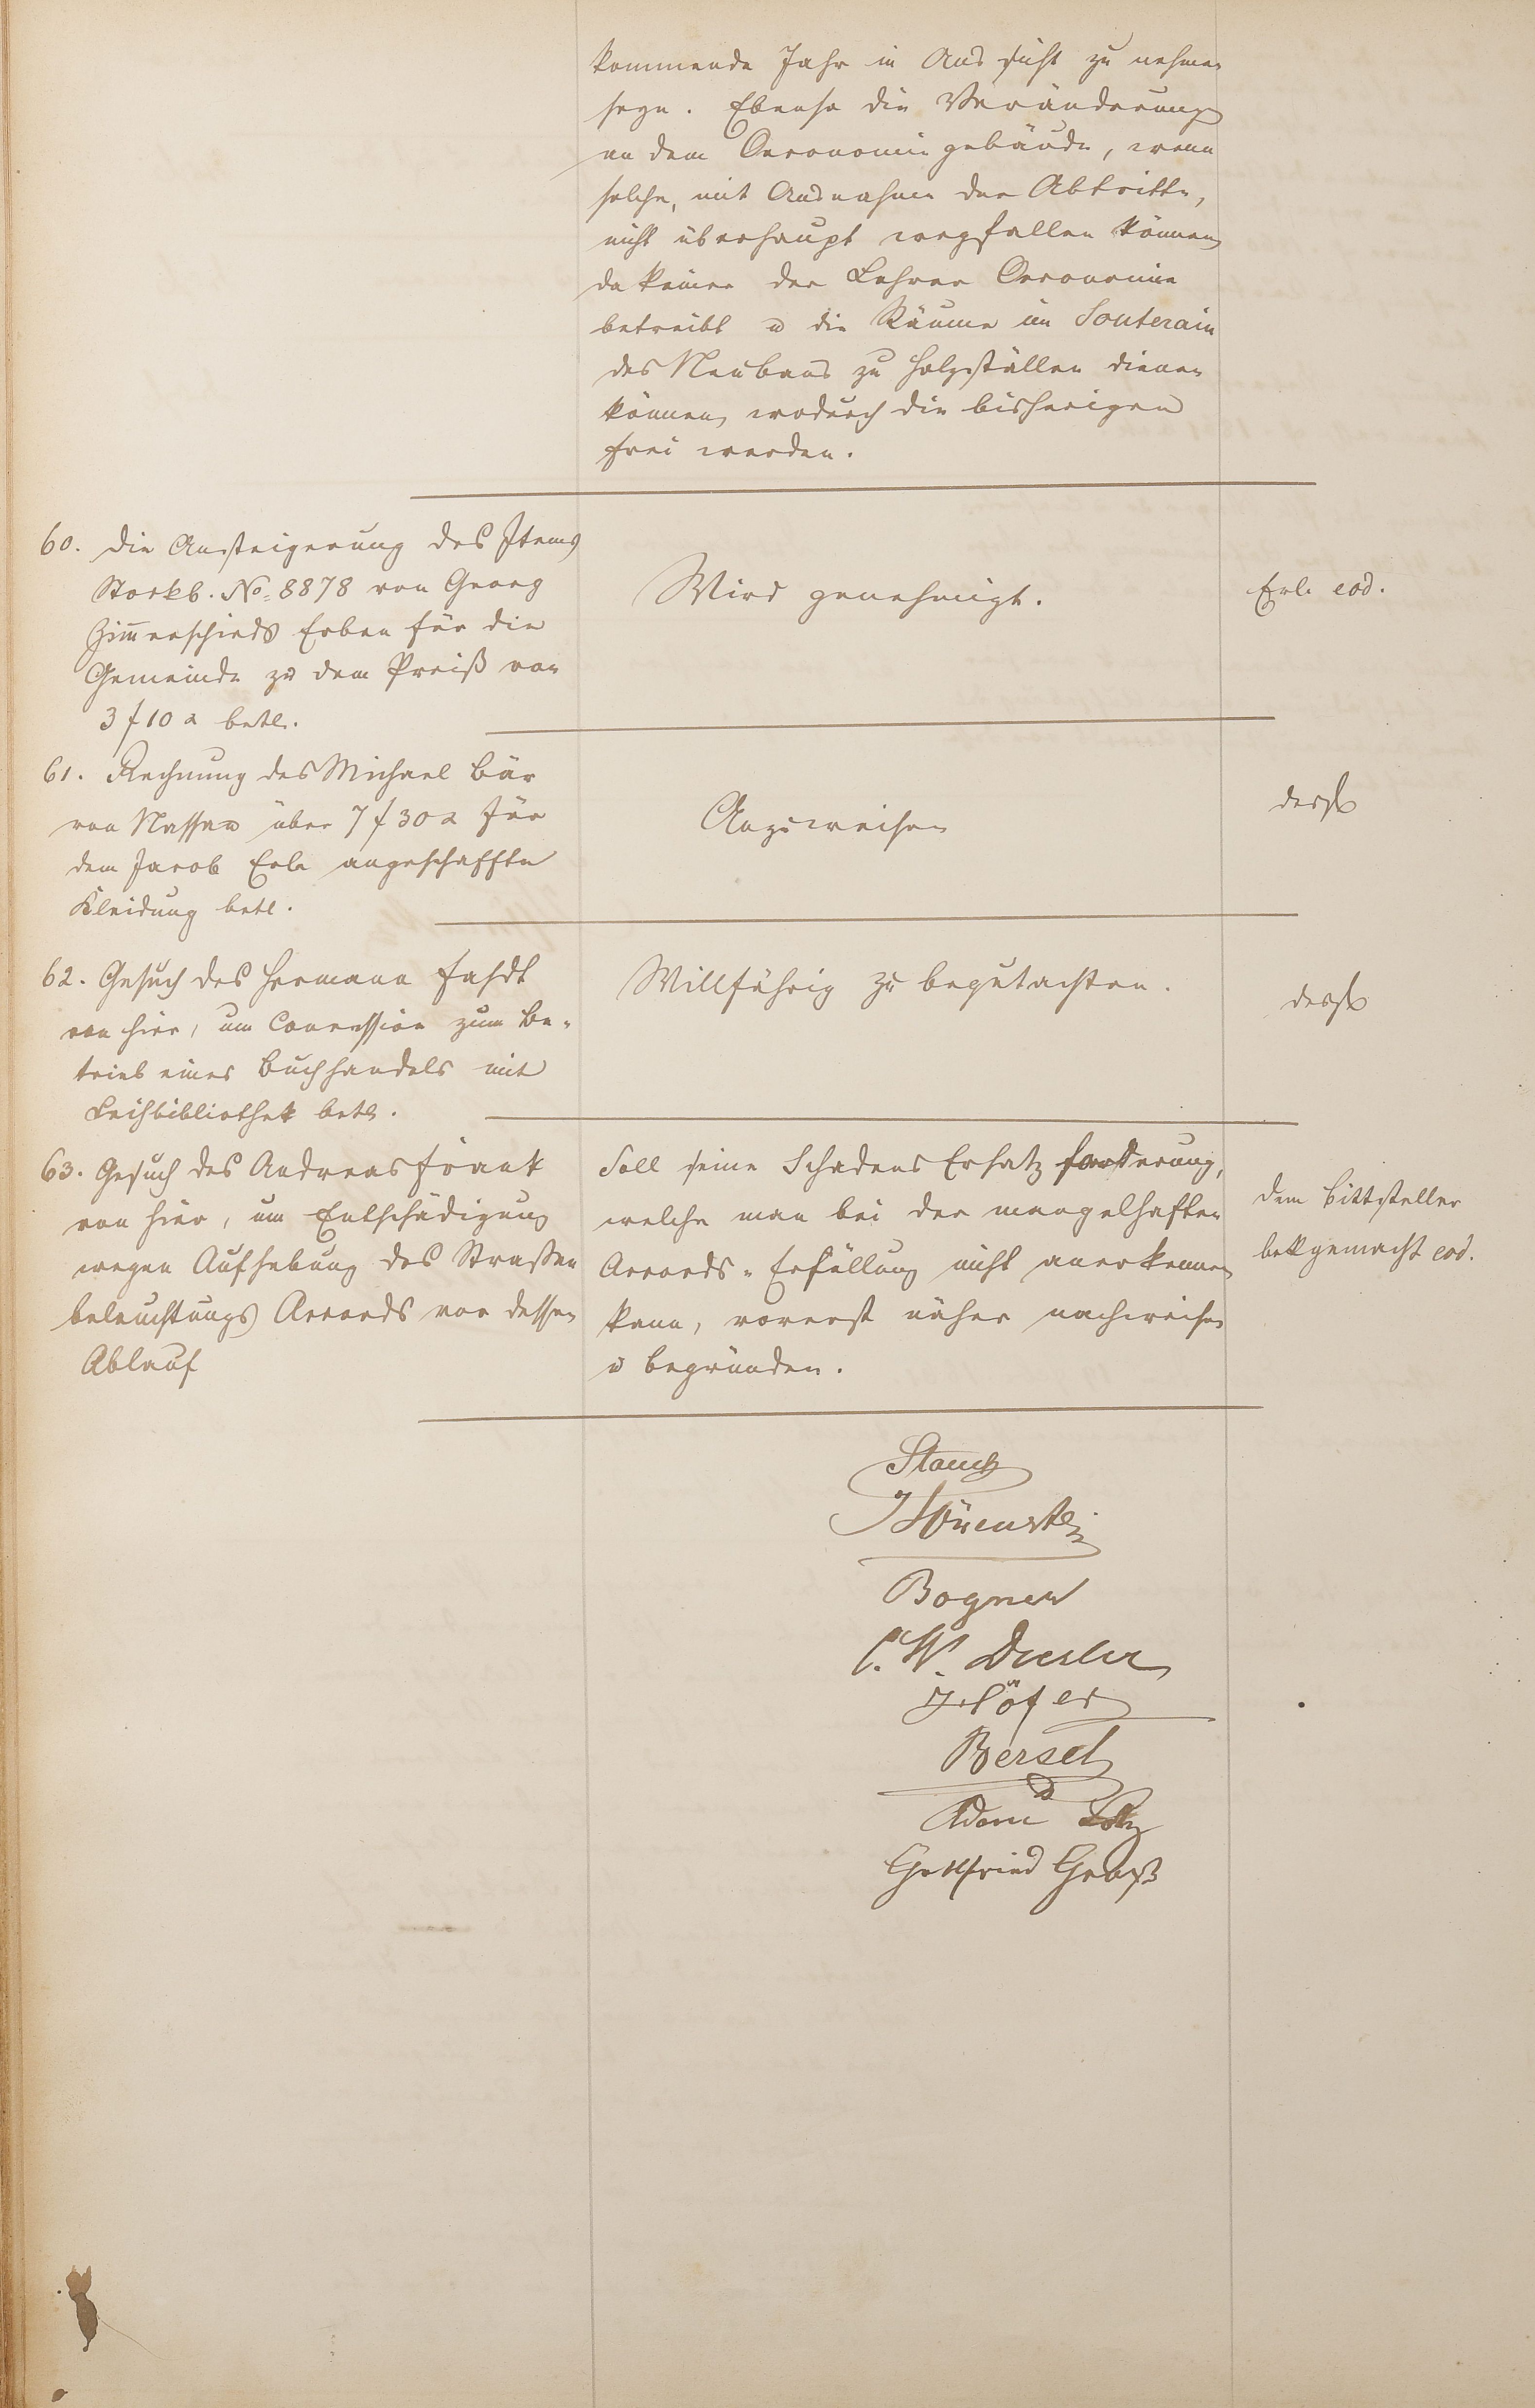 kommende Jahr in Aussicht zu nehmen
seyn. Ebenso die Veränderung
an dem Oeconomiegebäude, wenn
solche, mit Ausnahme der Abtritte,
nicht überhaupt wegfallen können,
da keiner der Lehrer Oeconomie
betreibt u die Räume im Souterain
des Neubaus zu Holzställen dienen
können, wodurch die bisherigen
frei werden.
60. Die Ansteigerung des Items
Stockb. No. 8878 von Georg
Zimmerschieds Erben für die
Gemeinde zu dem Preiß von
3 f 10 x betr.
Wird genehmigt.
Erl. eod.
61. Rechnung des Michael Bär
von Nassau über 7 f 30 x für
dem Jacob Erle angeschaffte
Kleidung betr.
Anzuweisen
dergl
62. Gesuch des Hermann Fahdt
von hier, um Concession zum Be-
trieb eines Buchhandels mit
Leihbibliothek betr.
Willfährig zu begutachten.
dergl
63. Gesuch des Andreas Frank
von hier, um Entschädigung
wegen Aufhebung des Straßen
beleuchtungs Accords vor dessen
Ablauf
Soll seine Schadens Ersatz forderung,
welche man bei der mangelhaften
Accords-Erfüllung nicht anerkennen
kann, vorerst näher nachweisen
u begründen.
dem Bittsteller
bekt gemacht eod.
Bogner
C. W. Diesler
J. Höfer
Bersch
Adam
Gottfried